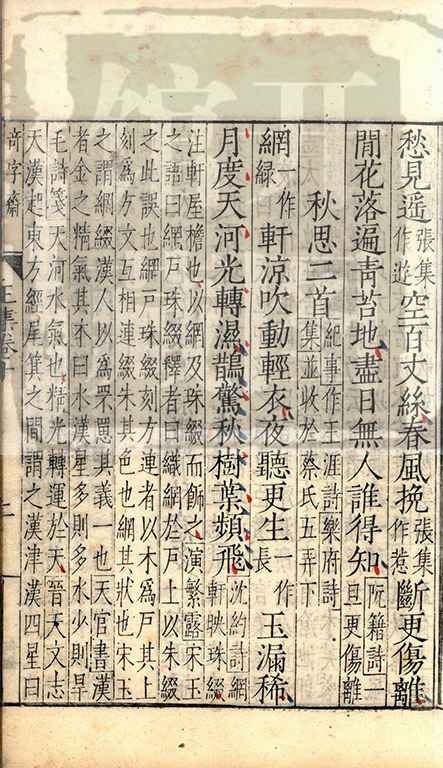 愁見遥張集作遊空百丈絲春風挽張集作惹斷更傷離
閒花落遍青苔地盡日無人誰得知阮籍詩一旦更傷離
秋思二首紀事作王涯詩樂府詩集並收於蔡氏五弄下
網一作綠軒涼吹動輕衣夜聽更生一作長玉漏稀
月度天河光轉濕鵲驚秋樹葉頻飛沈約詩網軒映珠綴
注軒屋檐也以網及珠綴而飾之演繁露宋玉
之語曰網戸珠綴釋者曰織網於戸上以朱綴
之此誤也網戸珠綴刻方連者以木爲戸其上
刻爲方文互相連綴朱其色也網其狀也宋玉
之謂網綴漢人以爲罘罳其義一也天官書漢
者金之精氣其本曰水漢星多則多水少則旱
毛詩箋天河水氣也精光轉運於天晉天文志
天漢起東方經尾箕之間謂之漢津漢四星曰
奇字齋 王集卷十 二